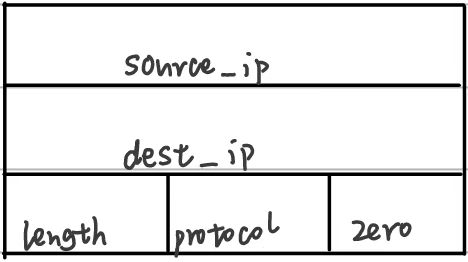 source_ip
dest_ip
length protocol zero